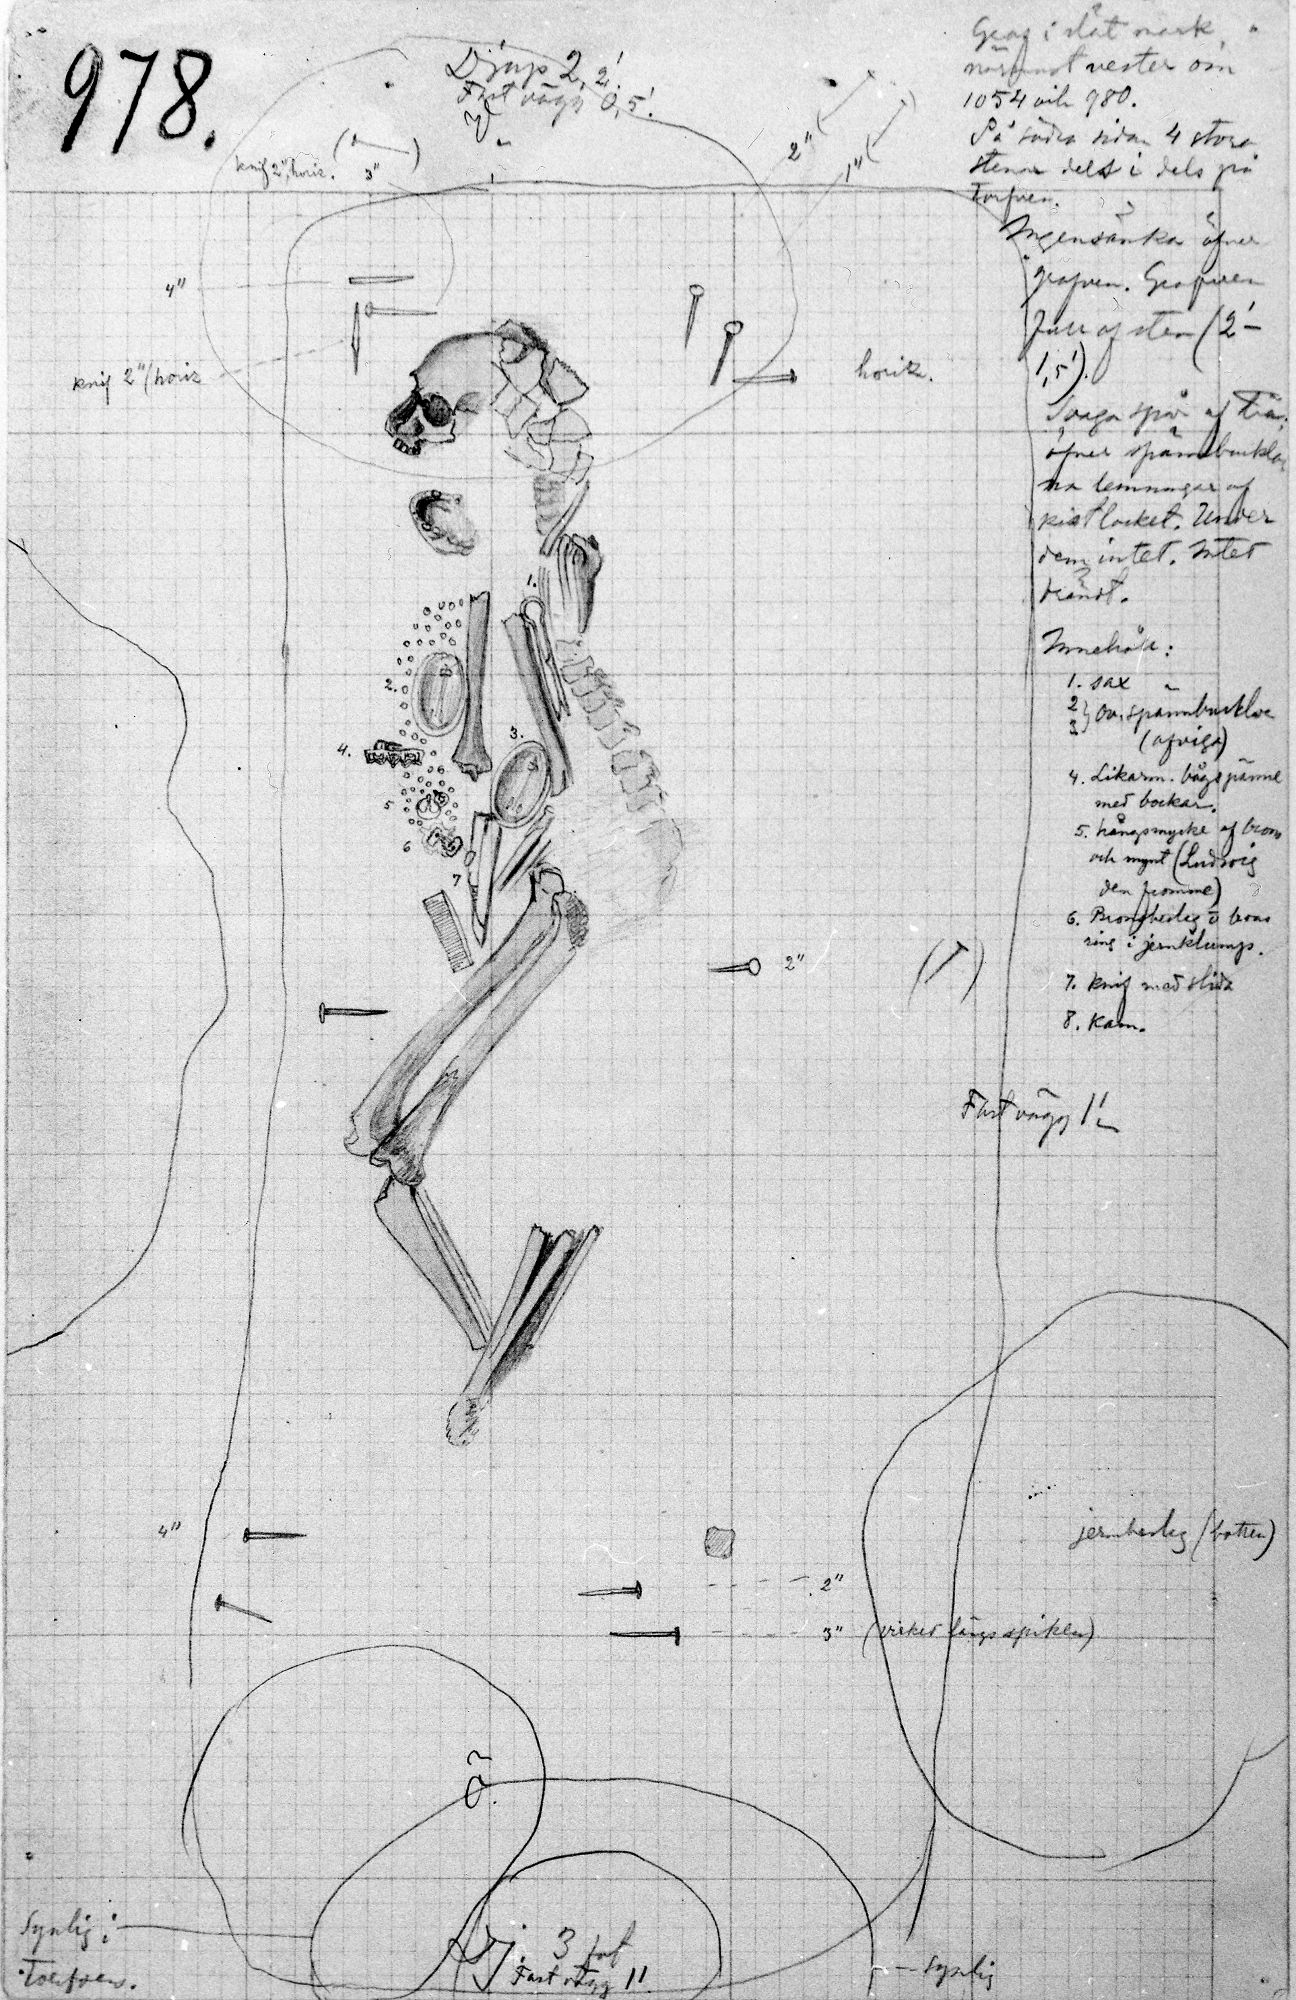 978.
Djup 2,2'.
Fast vägg 0,5'.
V.
knif 2", horiz.
3"
2"
1"
Graf i slät mark,
närmast vester om
1054 och 980.
På södra sidan 4 stora
stenar dels i dels på
torfven.
Ingen sänka öfver
grafven. Grafven
full af sten (2'–
1,5').
Svaga spår af trä
öfver spännbucklor
na lemningar af
kistlocket. Under
dem intet. Intet
brändt.
4"
knif 2" (horiz
horiz.
Innehöll:
1. sax
2 } Ov. spännbucklor
3. (afviga)
4. Likarm. bågspänne
med bockar.
5. hängsmycke af brons
och mynt (Ludvig
den fromme)
6. Bronsbeslag o brons
ring i jernklump.
7. knif med slida
8. kam.
1.
2.
3.
4.
5
6
7
2"
Fast vägg 1'
4"
jernbeslag (botten)
2"
3" (virket längs spiken)
Ö.
Synlig i
Torfven.
Dj. 3 fot
Fast vägg 1'
Synlig